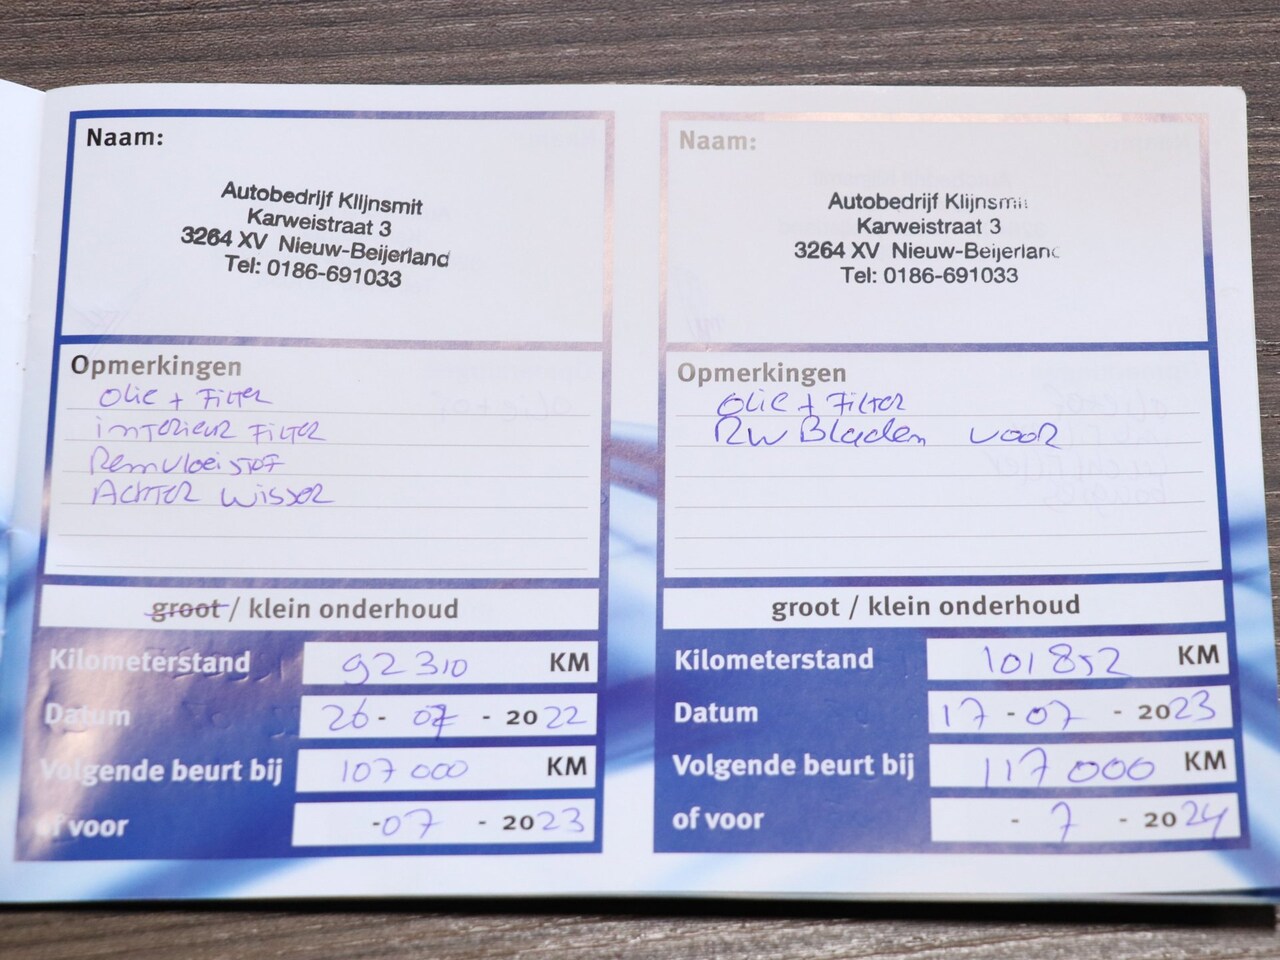 Naam:
Autobedrijf Klijnsmit
Karweistraat 3
3264 XV Nieuw-Beijerland
Tel: 0186-691033
Opmerkingen
Olie + Filter
interieur Filter
Remvloeistof
Achter wisser
groot / klein onderhoud
Kilometerstand 92310 KM
Datum 26 - 07 - 2022
Volgende beurt bij 107 000 KM
of voor -07 - 2023
Naam:
Autobedrijf Klijnsmit
Karweistraat 3
3264 XV Nieuw-Beijerland
Tel: 0186-691033
Opmerkingen
Olie + Filter
RW Bladen voor
groot / klein onderhoud
Kilometerstand 101852 KM
Datum 17 - 07 - 2023
Volgende beurt bij 117 000 KM
of voor - 7 - 2024